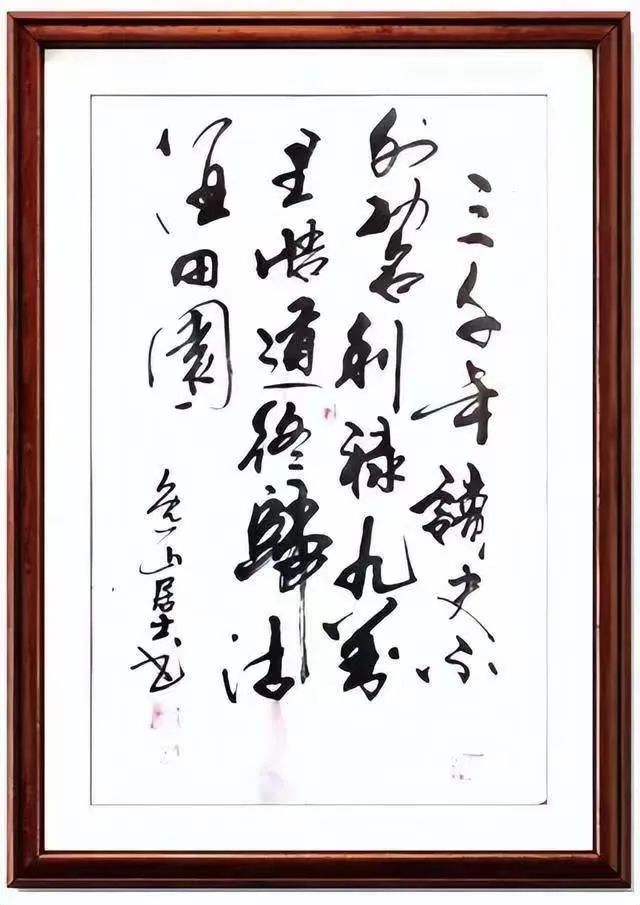 三千年讀史不
外功名利禄九萬
里悟道終歸诗
酒田園
山居士书